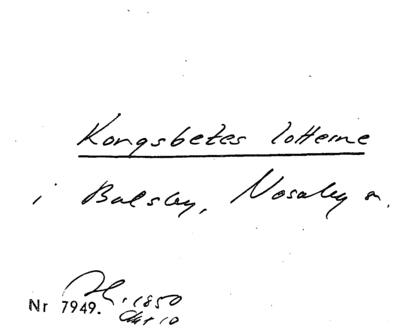 Kongsbetes lotterne
i Balsby, Nosaby s.
Nr 7949. 1850